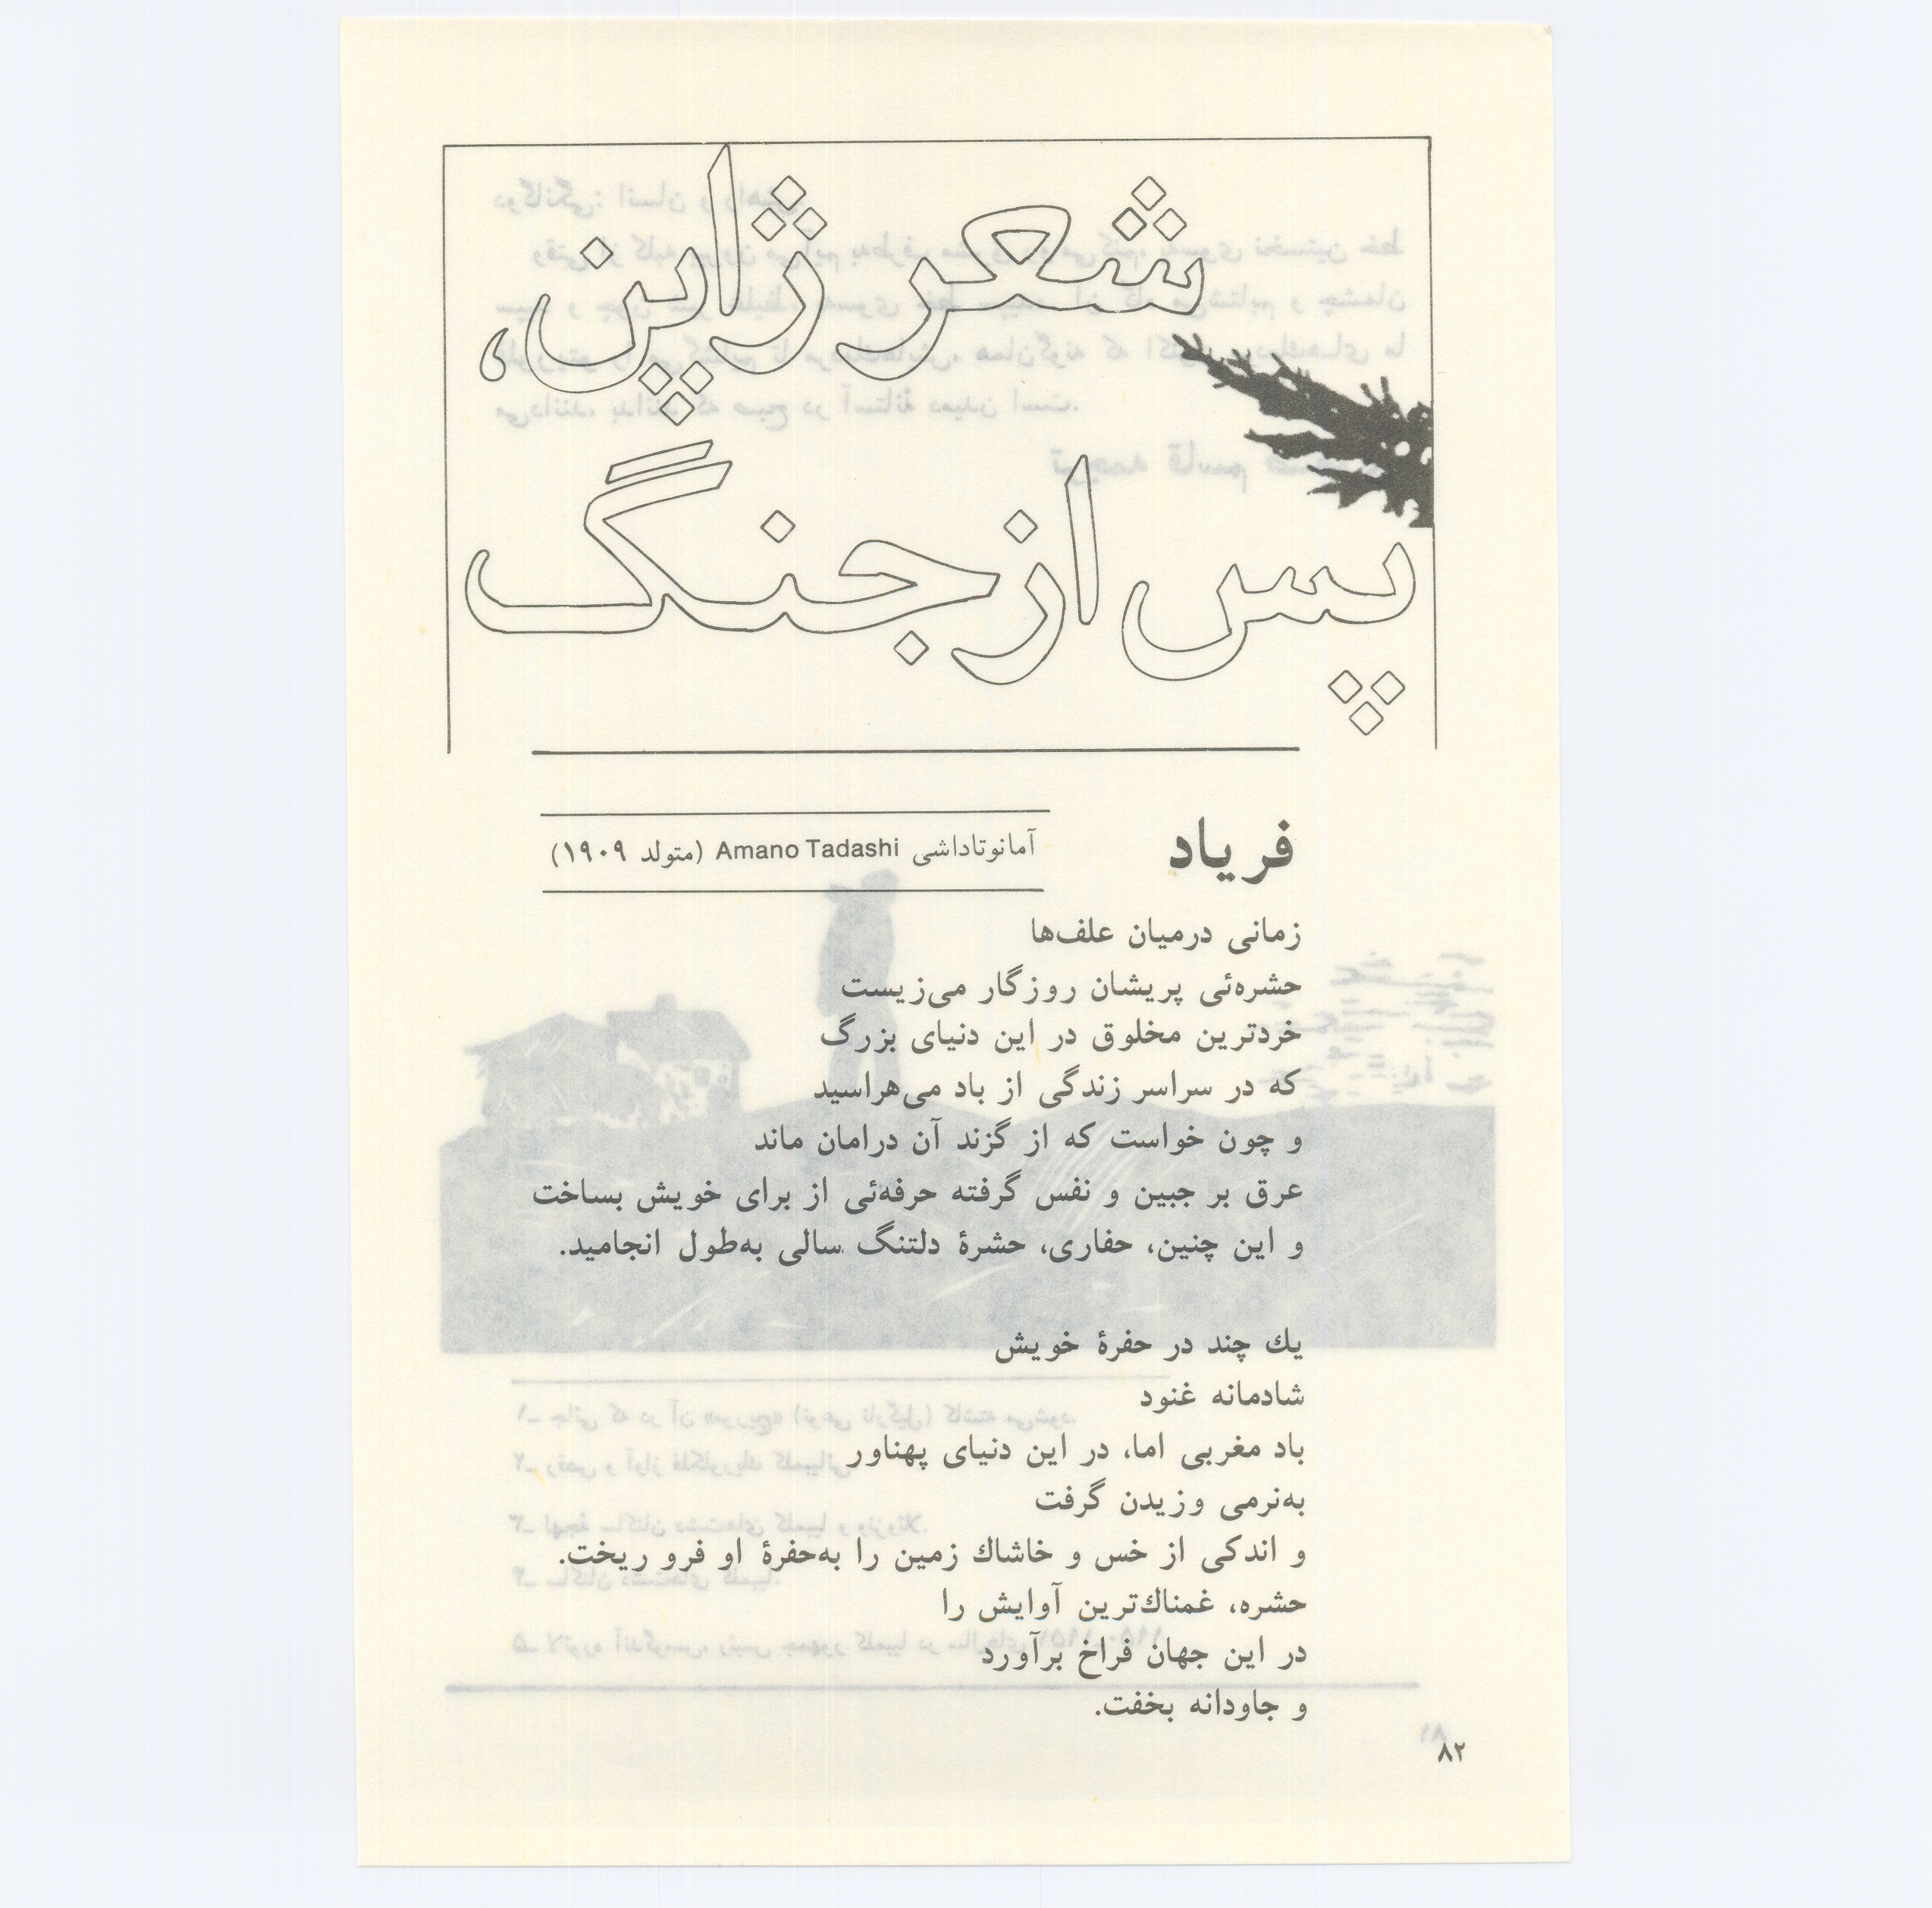 شعر ژاپن،
پس از جنگ
فریاد
آمانوتاداشی Amano Tadashi (متولد ۱۹۰۹)
زمانی درمیان علف‌ها
حشره‌ئی پریشان روزگار می‌زیست
خردترین مخلوق در این دنیای بزرگ
که در سراسر زندگی از باد می‌هراسید
و چون خواست که از گزند آن درامان ماند
عرق بر جبین و نفس گرفته حرفه‌ئی از برای خویش بساخت
و این چنین، حفاری، حشرهٔ دلتنگ سالی به‌طول انجامید.
یك چند در حفرهٔ خویش
شادمانه غنود
باد مغربی اما، در این دنیای پهناور
به‌نرمی وزیدن گرفت
و اندکی از خس و خاشاك زمین را به‌حفرهٔ او فرو ریخت.
حشره، غمناك‌ترین آوایش را
در این جهان فراخ برآورد
و جاودانه بخفت.
۸۲